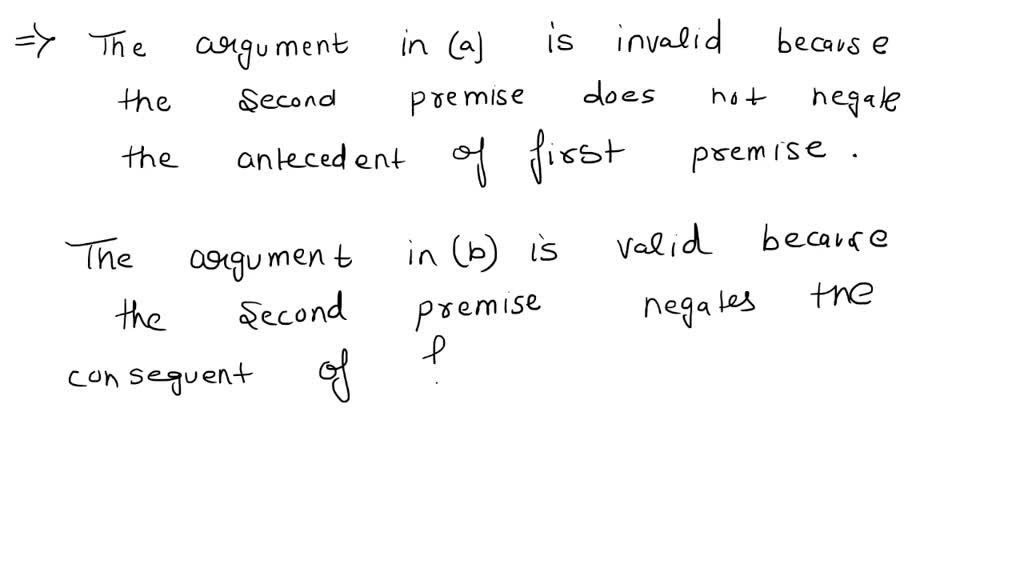 => The argument in (a) is invalid because
the second premise does not negate
the antecedent of first premise.
The argument in (b) is valid because
the second premise negates the
consequent of f